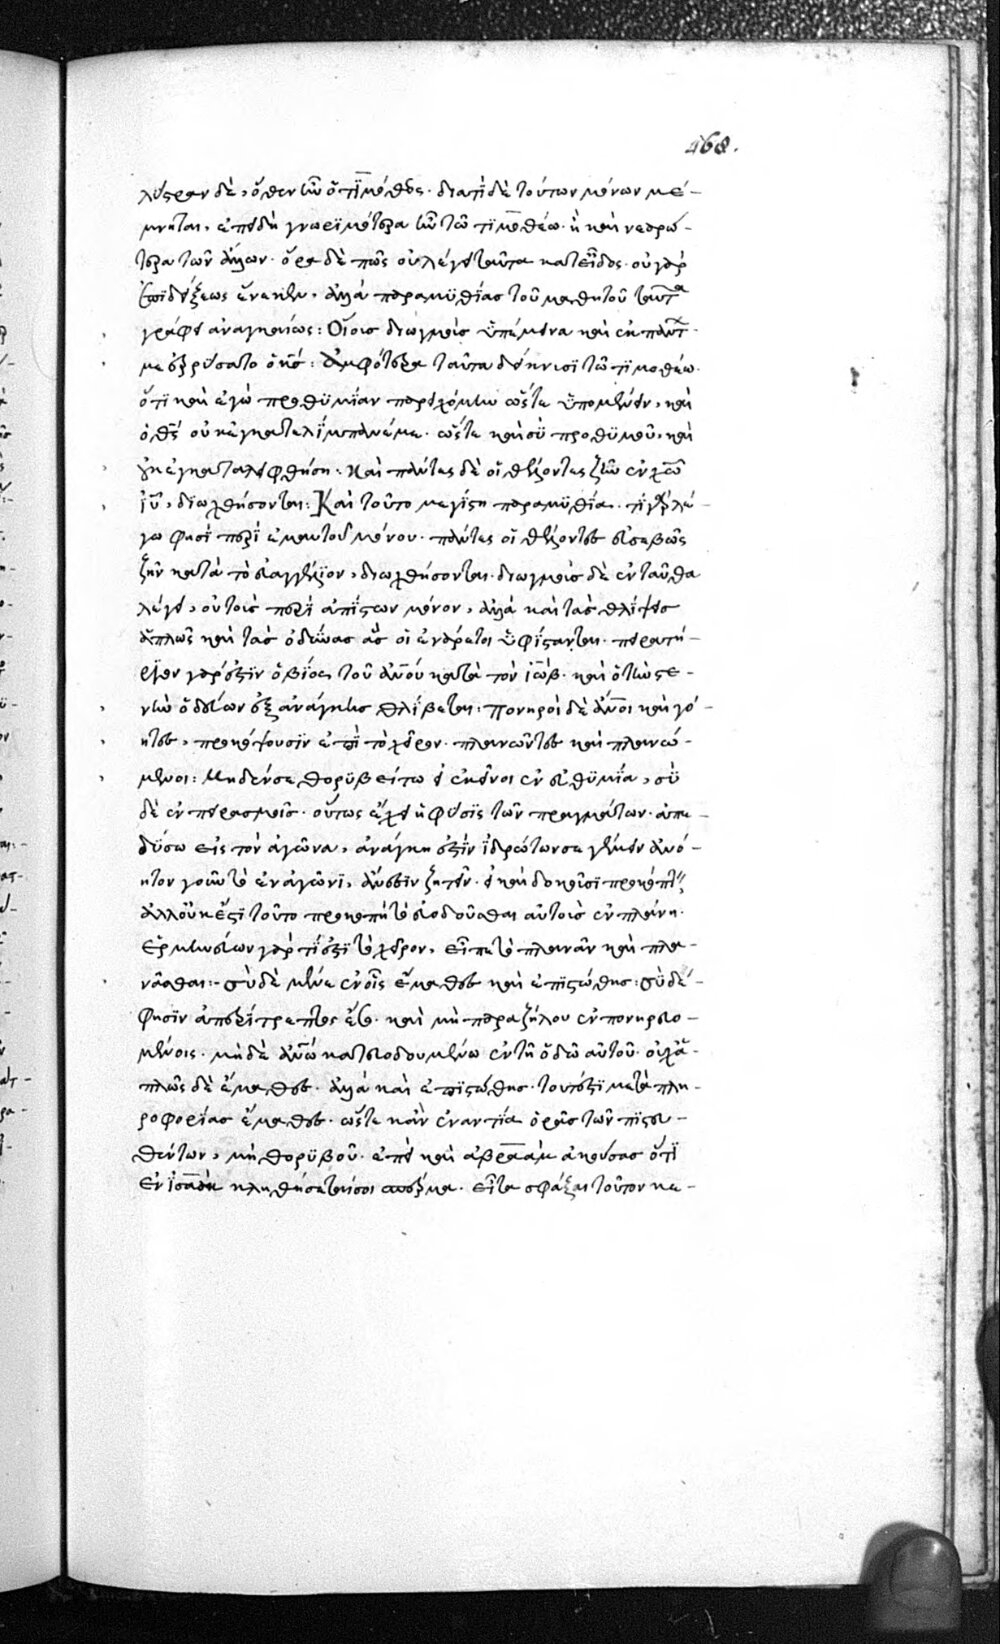 468.
λύστραν δὲ, ὅθεν ἦν ὁ τιμόθεος. διατί δὲ τούτων μόνων μέ-
μνηται, ἐπειδὴ γνωριμώτερα ἦν τῶ τιμοθέω. ἢ καὶ νεαρώ-
τερα τῶν ἄλλων. ὅρα δὲ πῶς οὐ λέγει ταῦτα κατ εἶδος. οὐ γὰρ
ἐπιδείξεως ἕνεκεν, ἀλλὰ παραμυθίας τοῦ μαθητοῦ ταῦτα
γράφει ἀναγκαίως: Οἵους διωγμοὺς ὑπέμεινα καὶ ἐκ πάντ
με ἐρρύσατο ὁ κς: Ἀμφότερα ταῦτα δείκνυσι τῶ τιμοθέω.
ὅτι καὶ ἐγὼ προθυμίαν παρειχόμην ὥστε ὑπομένειν, καὶ
ὁ θς οὐκ ἐγκατελίμπανέ με. ὥστε καὶ σὺ προθυμοῦ, καὶ
οὐκ ἐγκαταλειφθήση: Καὶ πάντες δὲ οἱ θέλοντες ζῆν ἐν χῶ
ἰυ, διωχθήσονται: Καὶ τοῦτο μεγίστη παραμυθία. τί γὰρ λέ-
γω φησὶ περὶ ἐμαυτοῦ μόνου. πάντες οἱ θέλοντες εὐσεβῶς
ζῆν κατὰ τὸ εὐαγγέλιον, διωχθήσονται. διωγμοὺς δὲ ἐνταῦθα
λέγει, οὐ τοὺς περὶ ἀπίστων μόνον, ἀλλὰ καὶ τὰς θλίψεις
ἁπλῶς καὶ τὰς ὀδύνας ἃς οἱ ἐνάρετοι ὑφίστανται. πειρατή-
ριον γάρ ἐστιν ὁ βίος τοῦ ἀνου κατὰ τὸν ἰώβ. καὶ ὁ τὴν στε-
νὴν ὁδεύων ἐξ ἀνάγκης θλίβεται: Πονηροὶ δὲ ἄνοι καὶ γό-
ητες, προκόψουσιν ἐπὶ τὸ χεῖρον. πλανῶντες καὶ πλανώ-
μενοι: Μηδέν σε θορυβείτω εἰ ἐκεῖνοι ἐν εὐθυμία, σὺ
δὲ ἐν πειρασμοῖς. οὕτως ἔχει ἡ φύσις τῶν πραγμάτων. ἀπε-
δύσω εἰς τὸν ἀγῶνα, ἀνάγκη ἐστὶν ἱδρώτων σε γέμειν ἀνό-
ητον γοῦν τὸ ἐν ἀγῶνι, ἄνεσιν ζητεῖν. εἰ καὶ δοκοῦσι προκόπτ
ἀλλ οὐκ ἔστι τοῦτο προκοπὴ τὸ εὐοδοῦσθαι αὐτοὺς ἐν πλάνη.
ἑρμηνεύων γὰρ τί ἐστι τὸ χεῖρον, εἶπε τὸ πλανᾶν καὶ πλα-
νᾶσθαι: σὺ δὲ μένε ἐν οἷς ἔμαθες καὶ ἐπιστώθης: σὺ δέ-
φησιν ἀπερίτρεπτος ἔσο. καὶ μὴ παραζήλου ἐν πονηρευο-
μένοις. μὴ δὲ ἀνω κατευοδουμένω ἐν τῆ ὁδῶ αὐτοῦ. οὐχ ἁ-
πλῶς δὲ ἔμαθες. ἀλλὰ καὶ ἐπιστώθης. τουτέστι μετὰ πλη-
ροφορίας ἔμαθες. ὥστε κἂν ἐναντία ὁρᾶς τῶν πιστευ-
θέντων, μὴ θορυβοῦ. ἐπεὶ καὶ ἀβραὰμ ἀκούσας ὅτι
ἐν ἰσαὰκ κληθήσεταί σοι σπέρμα. εἶτα σφάξαι τοῦτον κε-